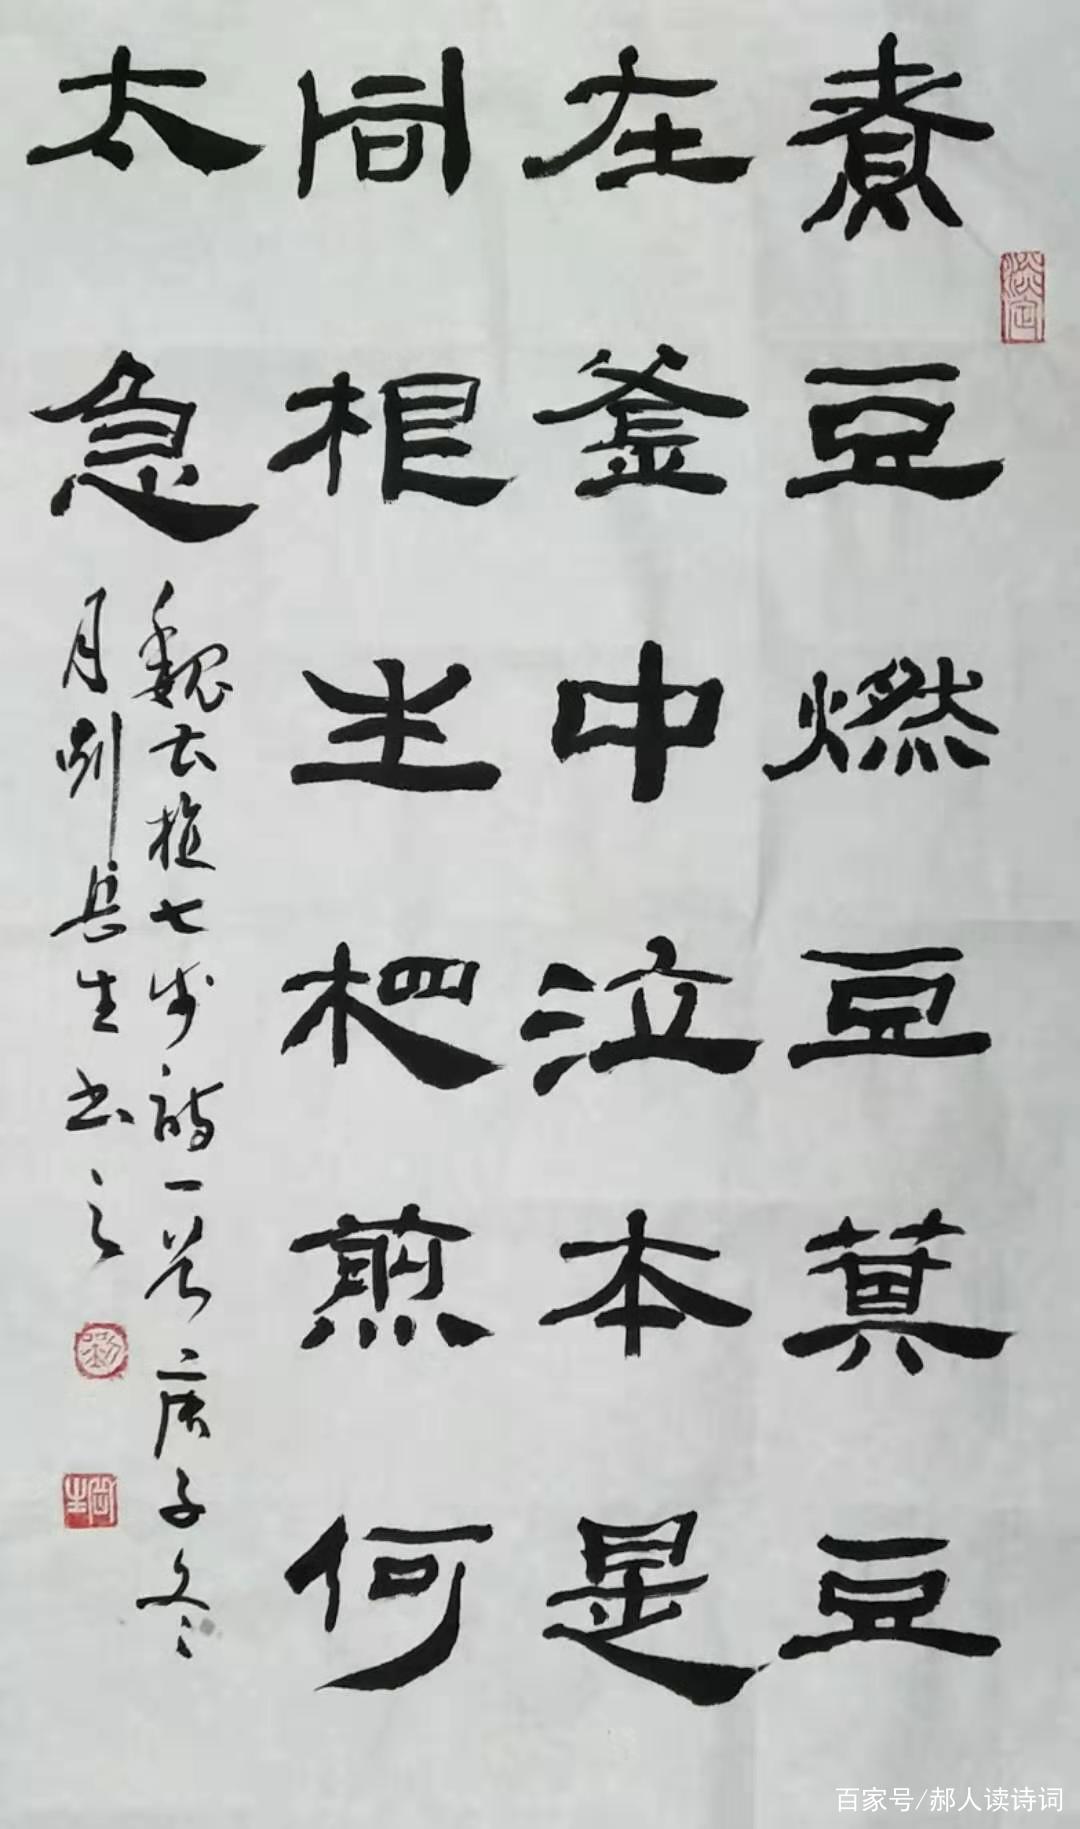 煮豆燃豆萁豆
在釜中泣本是
同根生相煎何
太急
魏曹植七步诗一首庚子冬
月刘岳生书之
淡定
百家号/郝人读诗词